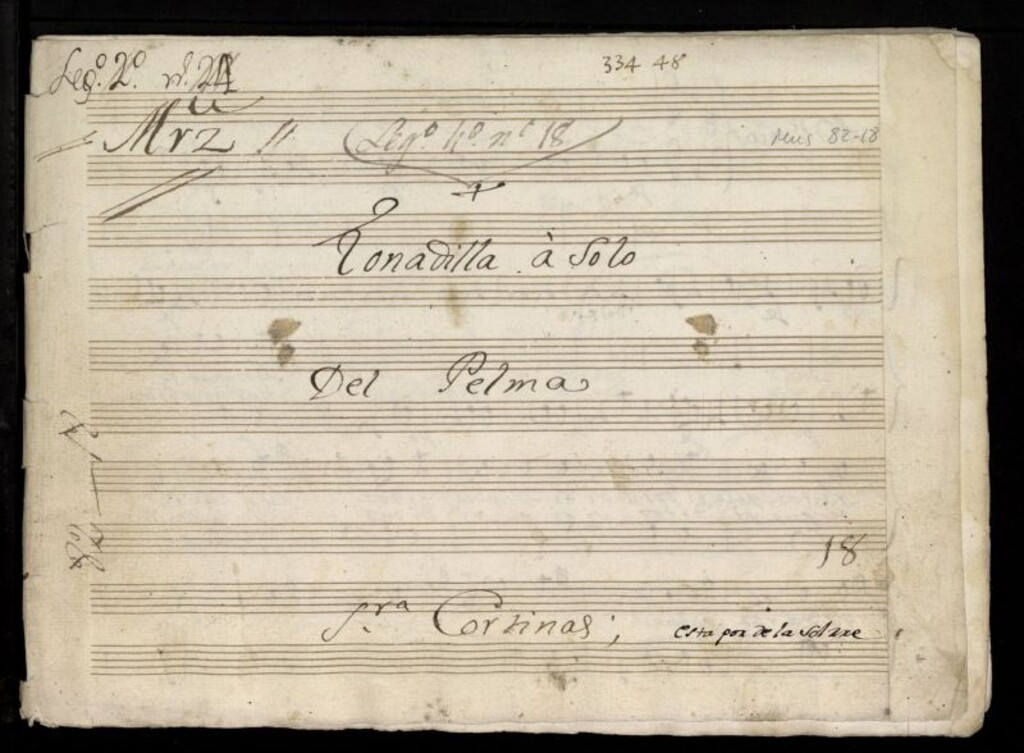 Leg.º 2.º n.º 24
334 48
Mrz
Leg.º 4.º n.º 18
Mus 82-18
Tonadilla à Solo
Del Pelma
18
S.ra Cortinas;
esta por de la sol